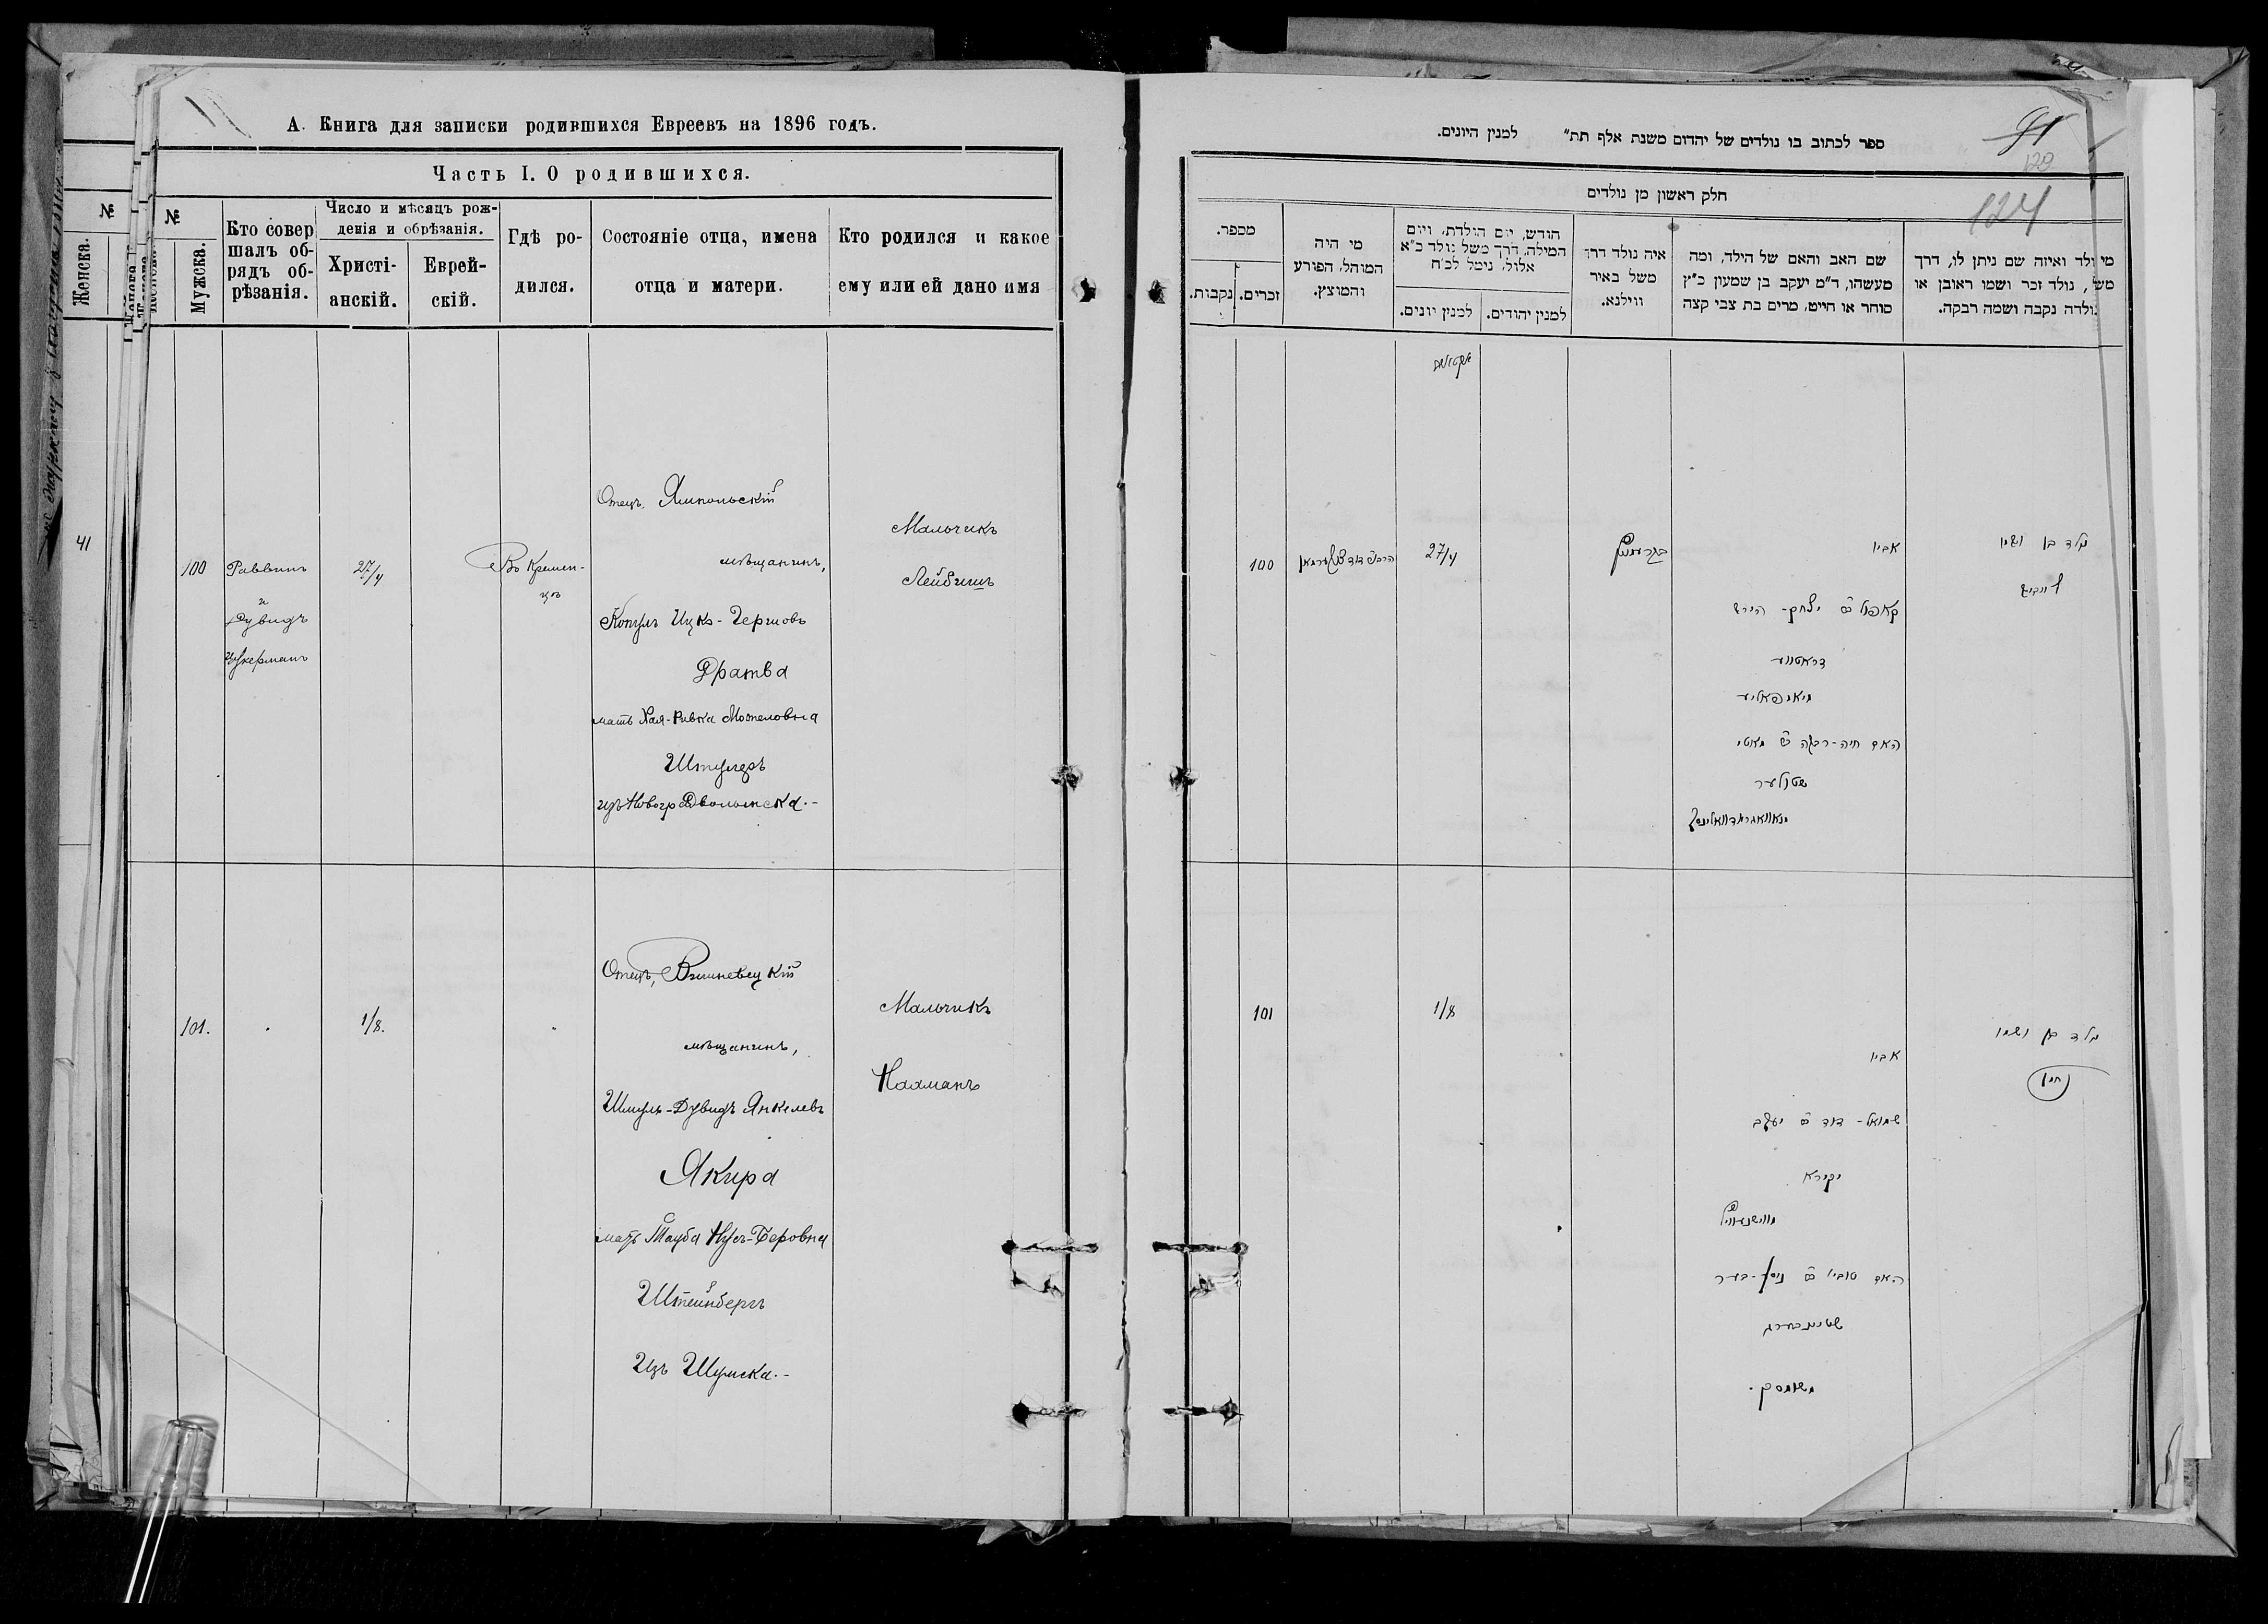 А. Книга для записки родившихся Евреевъ на 1896 годъ.
Часть I. О родившихся.
№
Женска.
№
Мужска.
Кто совер
шалъ об-
рядъ об-
рѣзанія.
Число и мѣсяцъ рож-
денія и обрѣзанія.
Христі-
анскій.
Еврей-
скій.
Гдѣ ро-
дился.
Состояніе отца, имена
отца и матери.
Кто родился и какое
ему или ей дано имя
41
100
Раввинъ
и
Дувидъ
Цукерманъ
27/4
Въ Кремен-
цѣ
Отецъ, Ямпольскій
мѣщанинъ,
Копуль Ицко-Гершовъ
Дратва
мать Хая-Ривка Мотеловна
Штуллеръ
изъ Новоградволынска.-
Мальчикъ
Лейбишъ
101.
1/8.
Отецъ, Вишневецкій
мѣщанинъ,
Шмуль-Дувидъ Янкелевъ
Якира
мать Тауба Нусъ-Беровна
Штейнбергъ
Изъ Шумска.-
Мальчикъ
Нахманъ
91
120
124
ספר לכתוב בו נולדים של יהדום משנת אלף תת״ למנין היונים.
חלק ראשון מן נולדים
מספר.
נקבות.
זכרים.
מי היה
המוהל, הפורע
והמוצץ.
חודש, יום הולדת, ויום
המילה, דרך משל נולד כ״א
אלול, נימל לכ״ח
למנין יונים.
למנין יהודים.
איה נולד דרך
משל באיר
ווילנא.
שם האב והאם של הילד, ומה
מעשהו, ד״מ יעקב בן שמעון כ״ץ
סוחר או חייט, מרים בת צבי קצה
מי ולד ואיזה שם ניתן לו, דרך
מש , נולד זכר ושמו ראובן או
נולדה נקבה ושמה רבקה.
100
27/4
אביו
יצחק - הירש
דראטווע
האם חיה-רבקה מאטי
שטולער
נולד בן ושמו
לייביש
101
1/8
אביו
שמואל - דוד יעקב
יקירא
האם טובי ניסן-בער
שטיינבערג
משומסק.
נולד בן ושמו
נחמן